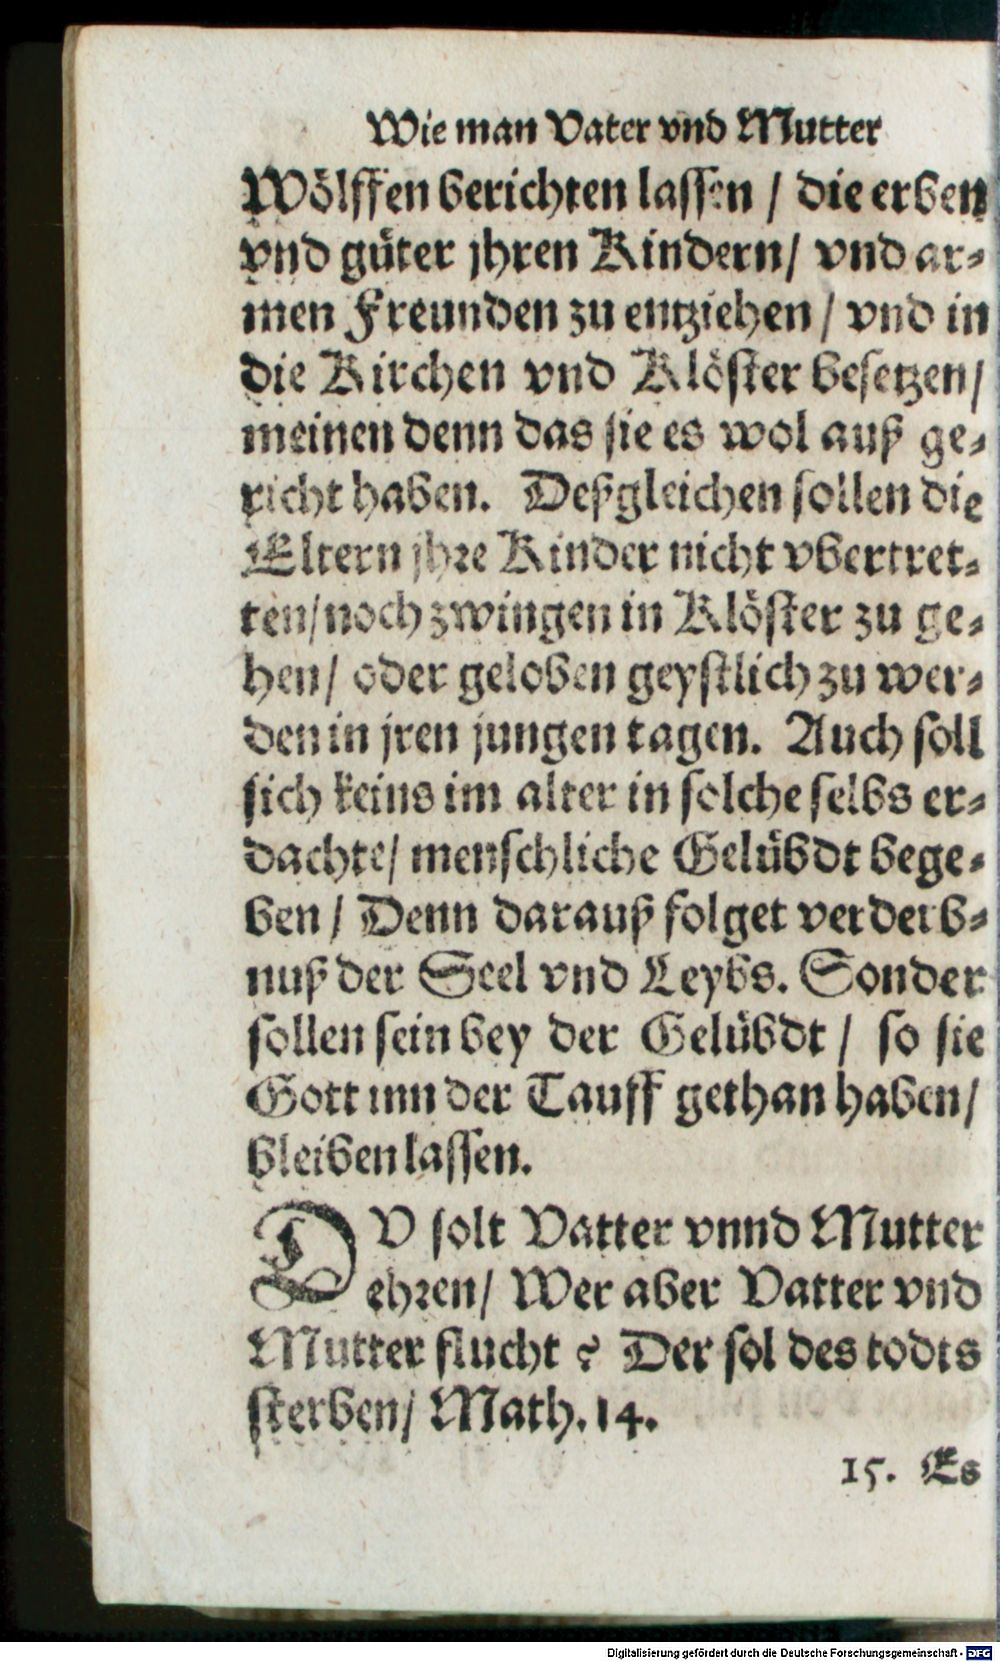 Wie man Vater vnd Mutter
Wölffen berichten lassen / die erben
vnd güter jhren Kindern / vnd ar-
men Freunden zu entziehen / vnd in
die Kirchen vnd Klöster besetzen /
meinen denn das sie es wol auß ge-
richt haben. Deßgleichen sollen die
Eltern jhre Kinder nicht vbertret-
ten / noch zwingen in Klöster zu ge-
hen / oder geloben geystlich zu wer-
den in jren jungen tagen. Auch soll
sich keins im alter in solche selbs er-
dachte / menschliche Gelübdt bege-
ben / Denn darauß folget verderb-
nuß der Seel vnd Leybs. Sonder
sollen sein bey der Gelübdt / so sie
Gott inn der Tauff gethan haben /
bleiben lassen.
DV solt Vatter vnnd Mutter
ehren / Wer aber Vatter vnd
Mutter flucht ? Der sol des todts
sterben / Math. 14.
15. Es
Digitalisierung gefördert durch die Deutsche Forschungsgemeinschaft - DFG